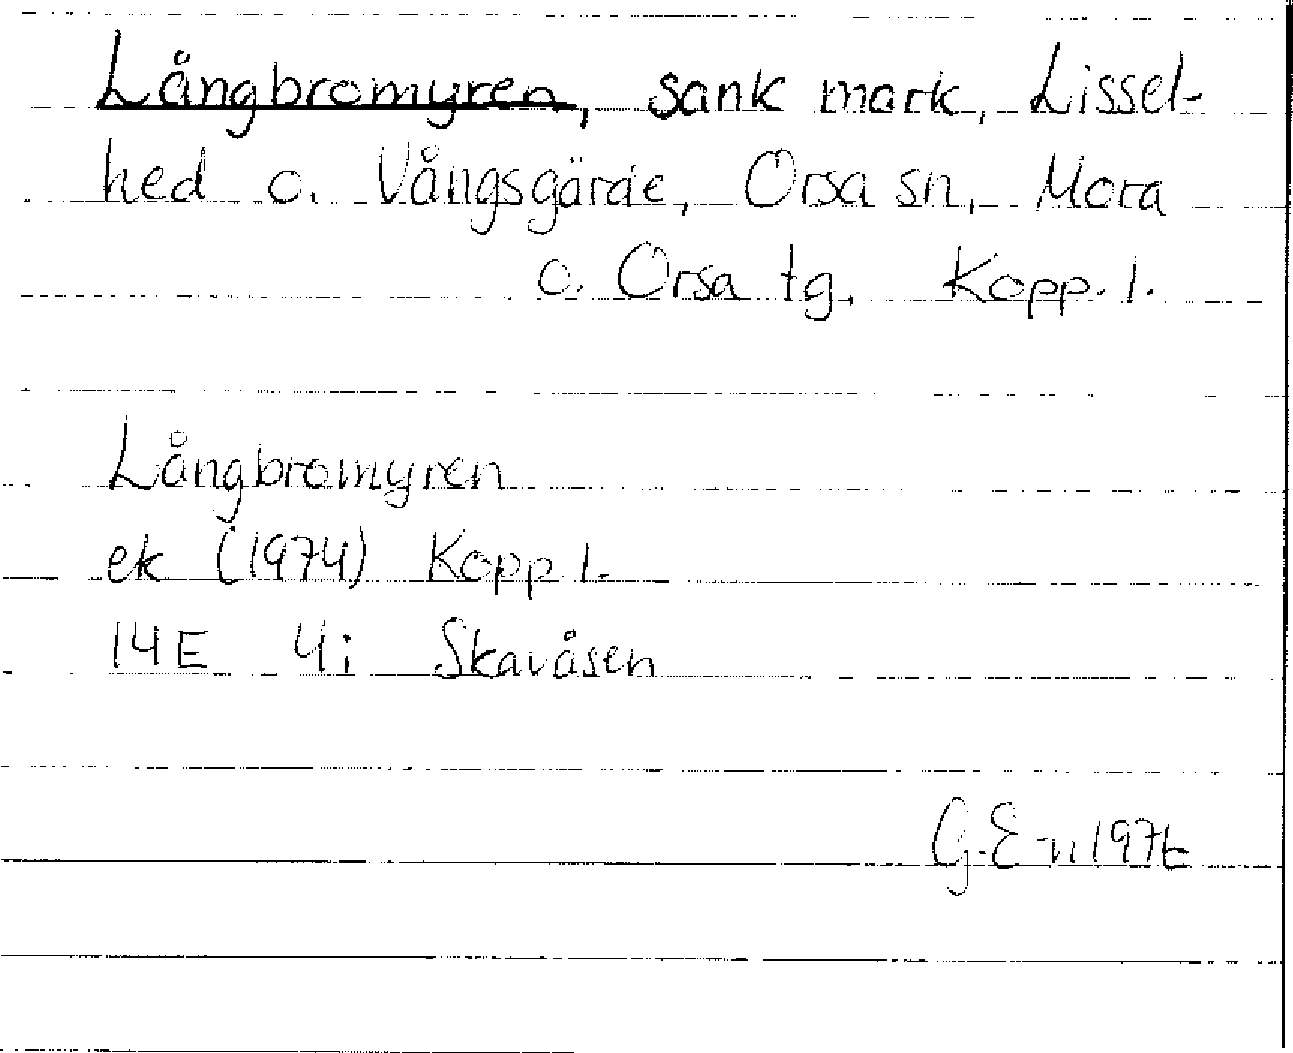 Långbromyren, sank mark, Lissel-
hed o. Vångsgärde, Orsa sn, Mora
o. Orsa tg. Kopp. l.
Långbromyren
ek (1974) Kopp l.
14E 4i Skavåsen
G.E-n 1976